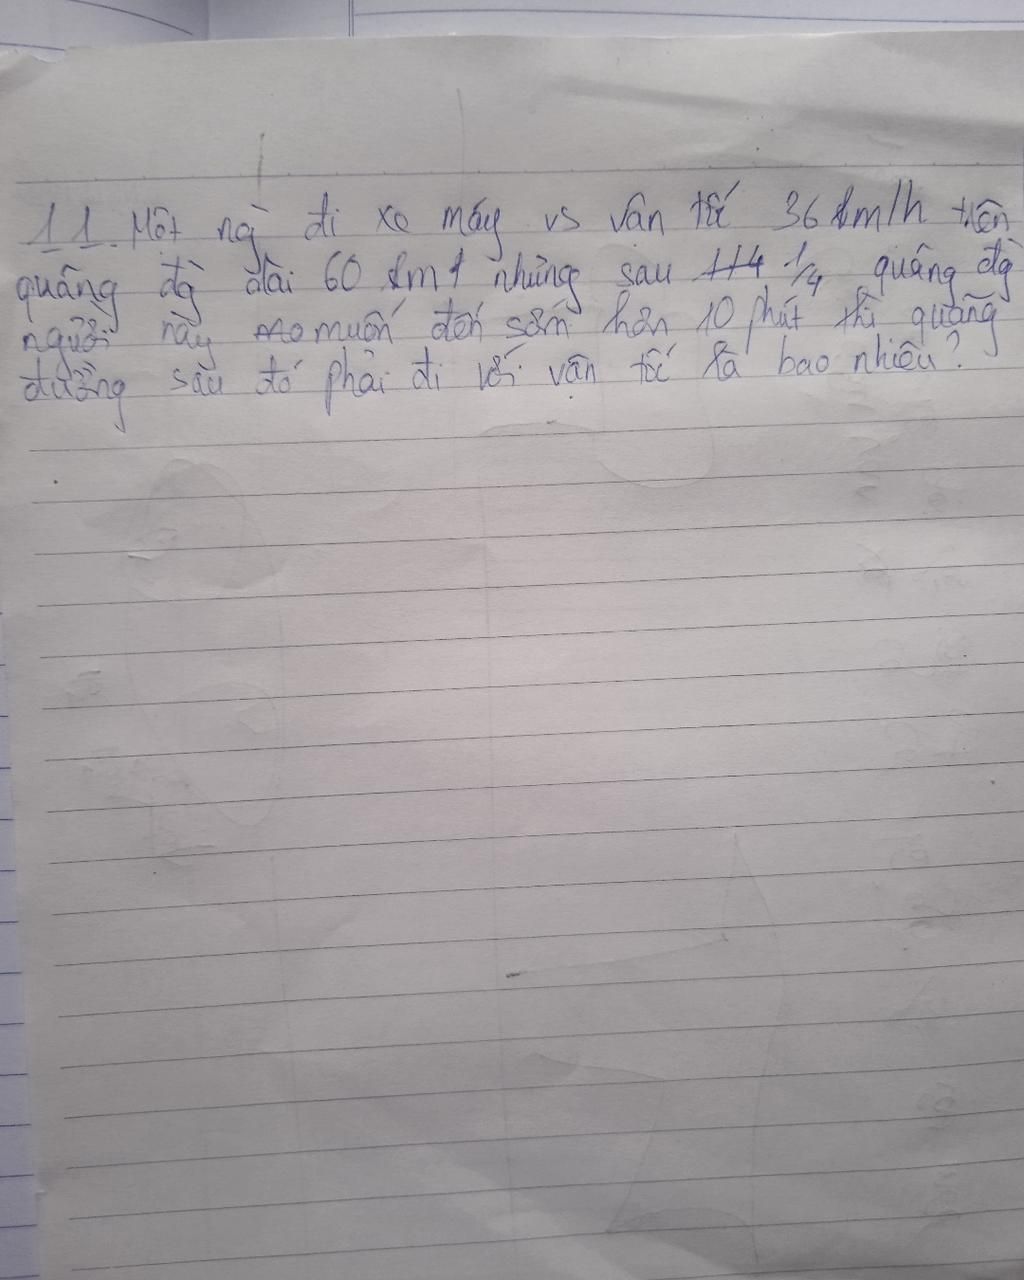 11. Một ng` đi xe máy vs vân tốć 36 km/h trên
quãng đg` dài 60 km nhưng sau 1/4 quãng đg`
người này muốn đến sớm hơn 10 phút thì quãng
đường sau đó phải đi với vận tốc là bao nhiêu?